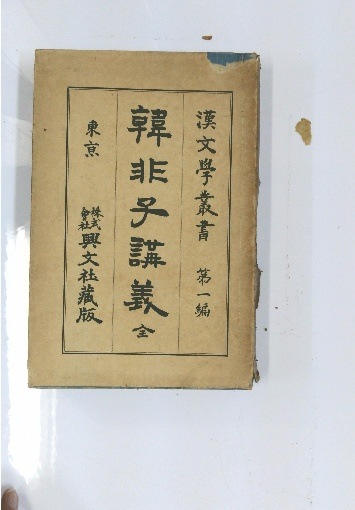 漢文學叢書 第一編
韓非子講義 全
東京 株式會社 興文社藏版